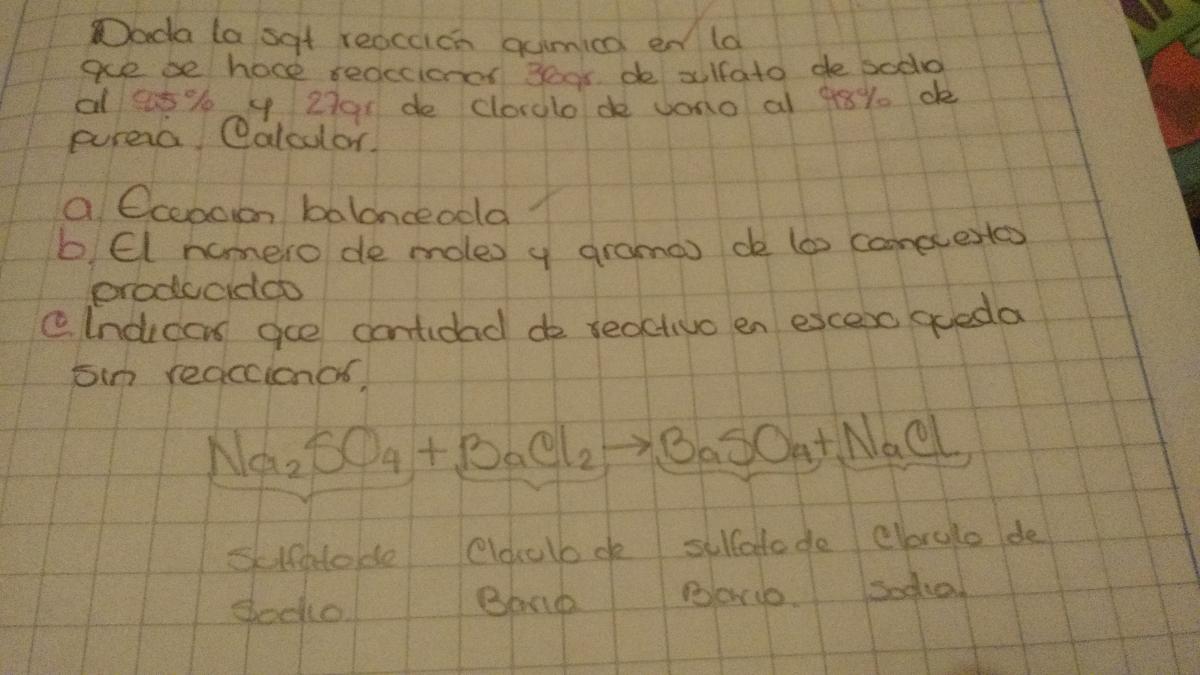 Dada la sgt reacción quimica en la
que se hace reaccionar 36gr de sulfato de sodio
al 95% y 27gr de Cloruro de vario al 98% de
pureza. Calcular.
a. Ecuacion balanceada
b. El numero de moles y gramos de los compuestos
producidos
c. Indicar que cantidad de reactivo en exceso queda
sin reaccionar.
Na₂SO₄ + BaCl₂ → BaSO₄ + NaCl
Sulfato de Cloruro de sulfato de Cloruro de
Sodio Bario Bario. Sodio.